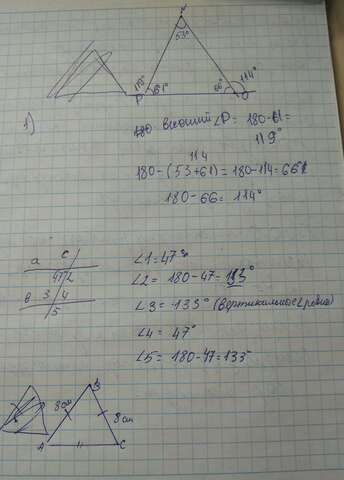 K
53°
119°
61°
66°
114°
P
O
1)
внешний ∠P = 180-61=
119°
114
180-(53+61)=180-114=66
180-66= 114°
a c
∠1=47°
1/2
∠2= 180-47=133°
в 3/4
∠3= 133° (вертикальное ∠ равна)
5
∠4= 47°
∠5= 180-47=133°
B
8 см
8 см
A
C